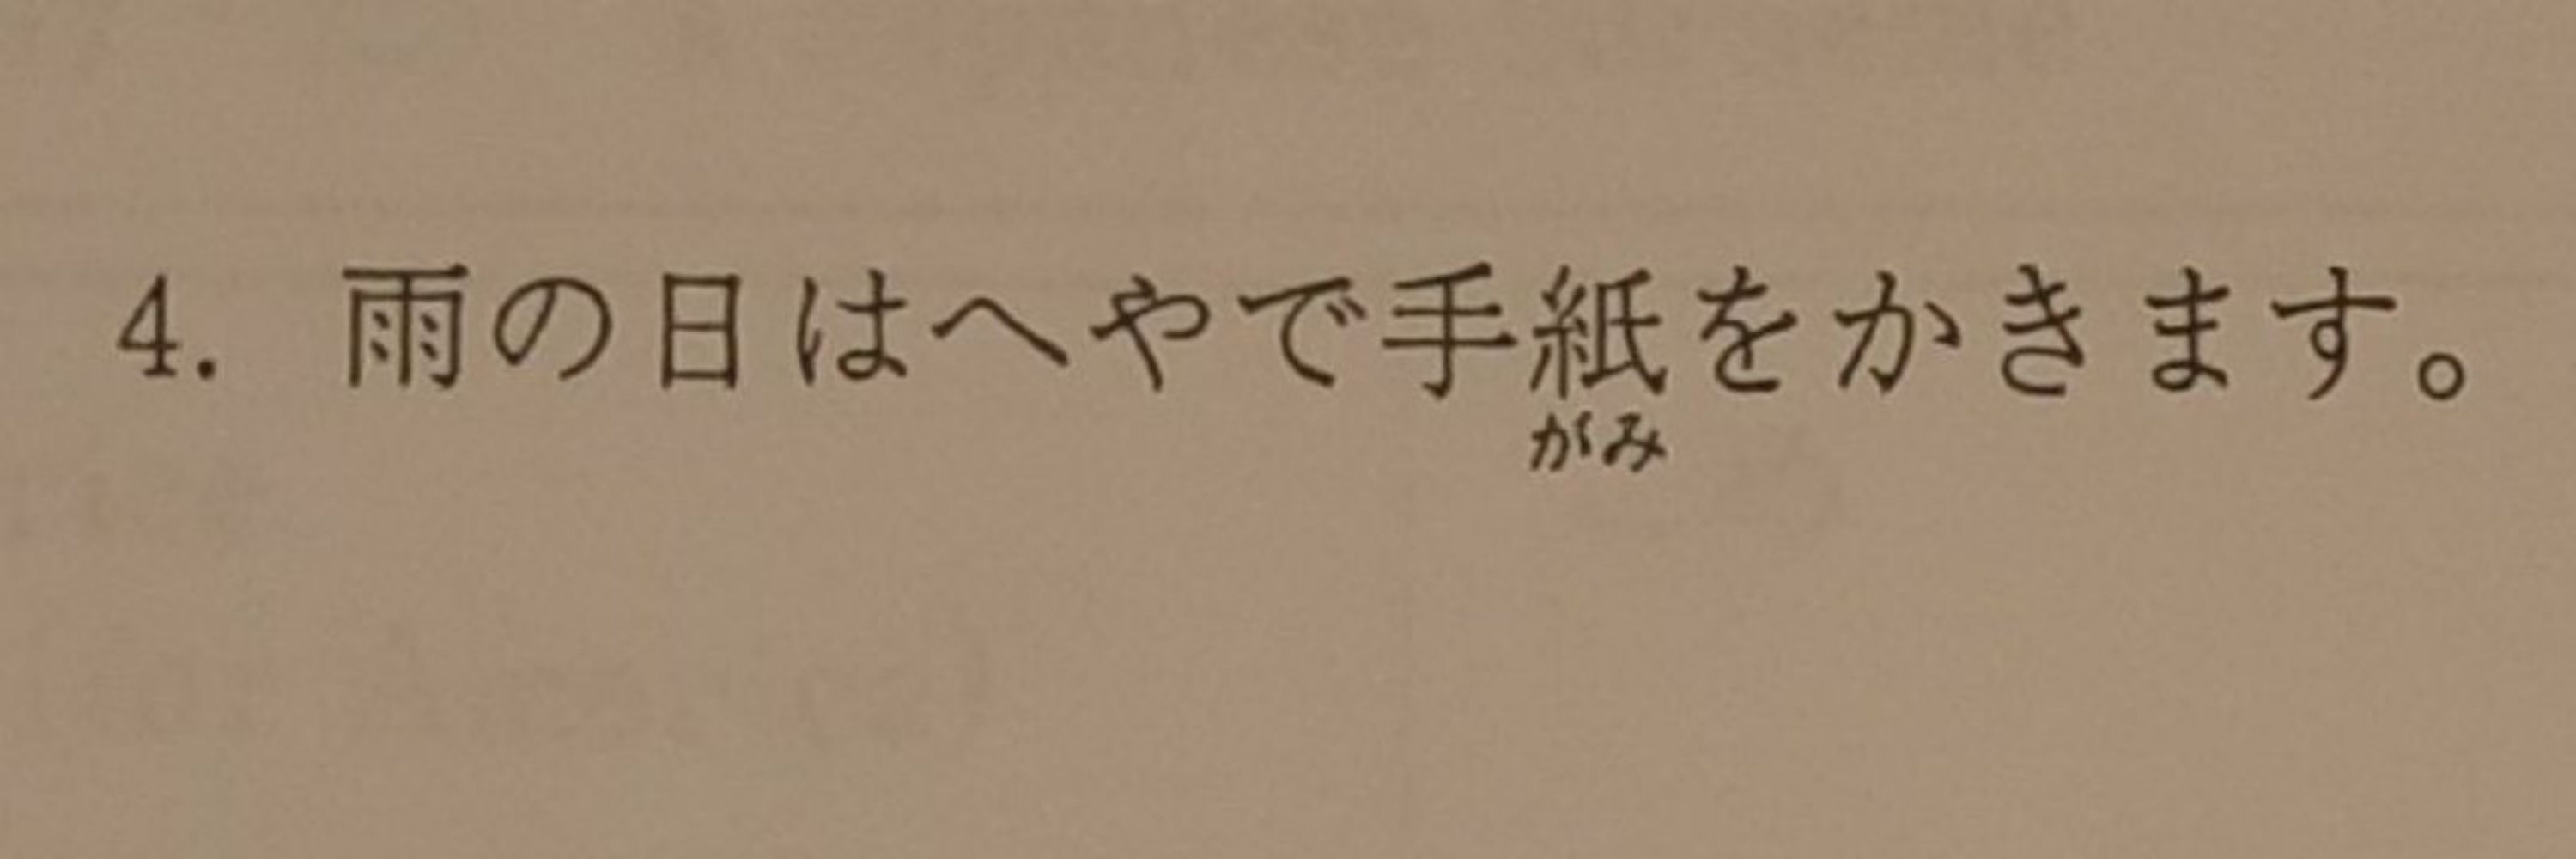 4. 雨の日はへやで手紙をかきます。
がみ